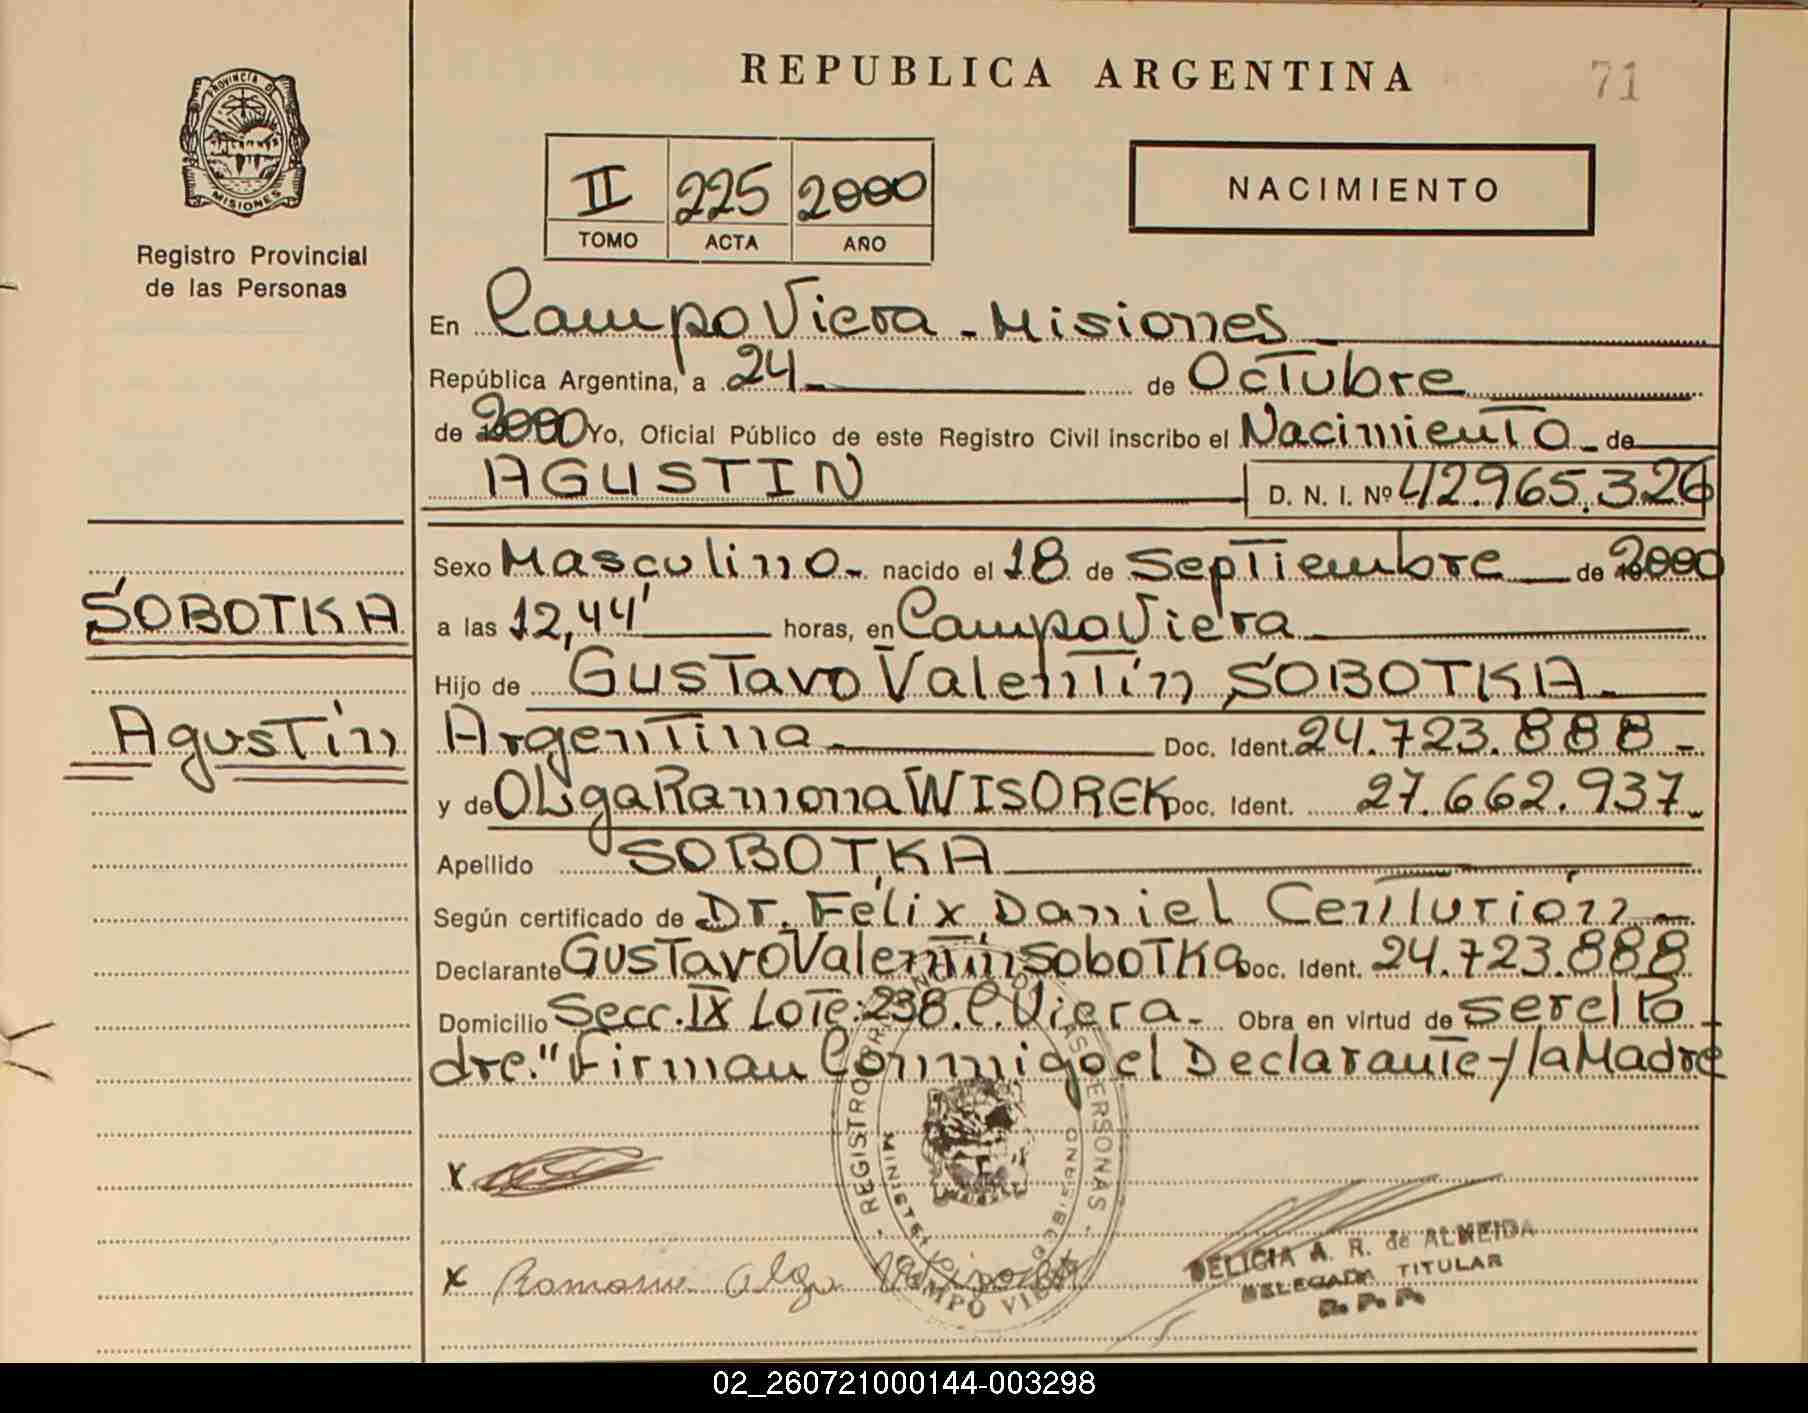 REPUBLICA ARGENTINA
71
PROVINCIA DE
MISIONES
Registro Provincial
de las Personas
II 225 2000
TOMO ACTA AÑO
NACIMIENTO
En Campo Viera - Misiones
República Argentina, a 24 de Octubre
de 2000 Yo, Oficial Público de este Registro Civil inscribo el Nacimiento de
AGUSTIN D. N. I. Nº 42.965.326
Sexo Masculino - nacido el 18 de Septiembre de 2000
a las 12,44' horas, en Campo Viera
SOBOTKA
Hijo de Gustavo Valentín SOBOTKA
Agustín
Argentina Doc. Ident. 24.723.888 -
y de OLga Ramona WISOREK Doc. Ident. 27.662.937
Apellido SOBOTKA
Según certificado de Dr. Félix Daniel Centurión
Declarante Gustavo Valentín Sobotka Doc. Ident. 24.723.888
Domicilio Secc. IX Lote: 238. C. Viera - Obra en virtud de ser el Pa
dre." Firman Conmigo el Declarante y la Madre
REGISTRO PERSONAS
MINISTERIO GOBIERNO
CAMPO VIERA
X
X Ramona Olga
DELICIA A. R. de ALMEIDA
DELEGADA TITULAR
R. P. P.
02_260721000144-003298